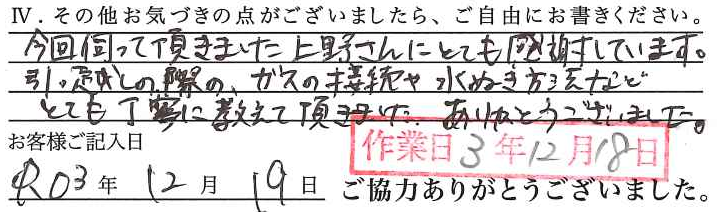 Ⅳ．その他お気づきの点がございましたら、ご自由にお書きください。
今回伺って頂きました上野さんにとても感謝しています。
引っ越しの際の、ガスの接続や水ぬき方法など
とても丁寧に教えて頂きました。ありがとうございました。
お客様ご記入日
作業日 3年12月18日
R03年 12月 19日 ご協力ありがとうございました。